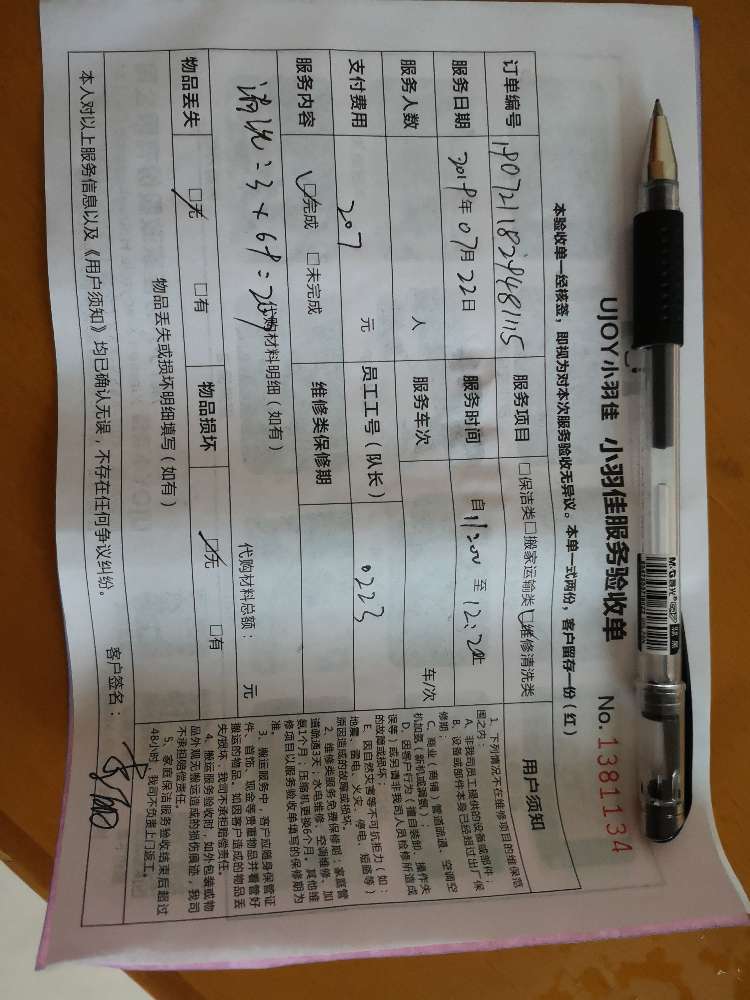 UJOY小羽佳 小羽佳服务验收单 No. 1381134
本验收单一经核签，即视为对本次服务验收无异议。本单一式两份，客户留存一份（红）
订单编号 服务项目 □保洁类□搬家运输类□维修清洗类
服务日期 2019年07月22日 服务时间 自 11:20 至 12:20止
服务人数 人 服务车次 车/次
支付费用 207 元 员工工号（队长） 0223
服务内容 □完成 □未完成 维修类保修期
代购材料明细（如有） 代购材料总额： 元
清洗=3×69=207
物品丢失 □无 □有 物品损坏 □无 □有
物品丢失或损坏明细填写（如有）
本人对以上服务信息以及《用户须知》均已确认无误，不存在任何争议纠纷。 客户签名：
用户须知
1、下列情况不在维修项目的维保范
围之内：
A、非我司员工提供的设备或部件；
B、设备或部件本身已经超过出厂保
修期；
C、商业（商铺）管道疏通、空调空
机加氨（新机或漏氨）；
D、因客户行为（擅自装卸、操作失
误等）或另请非我司人员检修所造成
的故障或损坏；
E、因自然灾害等不可抗拒力（如：
地震、雷电、火灾、停电、短路等）
原因造成的故障或损坏。
2、维修类服务免费保修期：家庭管
道疏通3天；水电维修、空调维修、加
氨1个月；压缩机更换6个月。其他维
修项目以服务验收单填写的保修期为
准。
3、搬运服务中，客户应随身保管证
件、首饰、现金等贵重物品并看管好
搬运的物品。如因客户造成的物品丢
失/损坏，我司不承担赔偿责任。
4、搬运服务验收时，如外包装或物
品外观无搬运造成的损伤痕迹，我司
不承担赔偿责任。
5、家庭保洁服务验收结束后超过
48小时，我司不负责上门返工。
M&G晨光